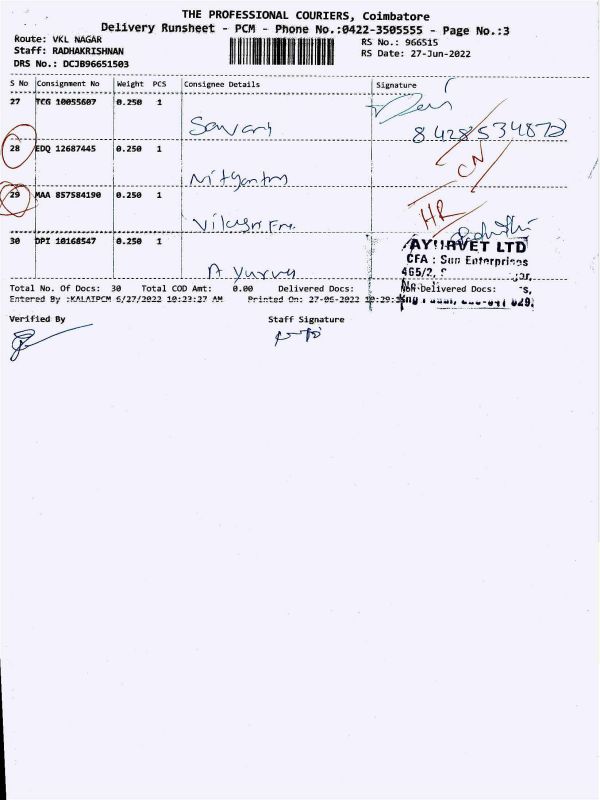 THE PROFESSIONAL COURIERS, Coimbatore
Delivery Runsheet - PCM - Phone No.:0422-3505555 - Page No.:3
Route: VKL NAGAR
RS No.: 966515
Staff: RADHAKRISHNAN
RS Date: 27-Jun-2022
DRS No.: DCJB96651503
S No Consignment No Weight PCS Consignee Details Signature
27 TCG 10055607 0.250 1
8428534872
28 EDQ 12687445 0.250 1
CN
29 MAA 857584190 0.250 1
HR
30 DPI 10168547 0.250 1
AYURVET LTD
CFA : Sun Enterprises
465/2,
Total No. Of Docs: 30 Total COD Amt: 0.00 Delivered Docs: Non-Delivered Docs:
Entered By :KALAIPCM 6/27/2022 10:23:27 AM Printed On: 27-06-2022
Verified By Staff Signature